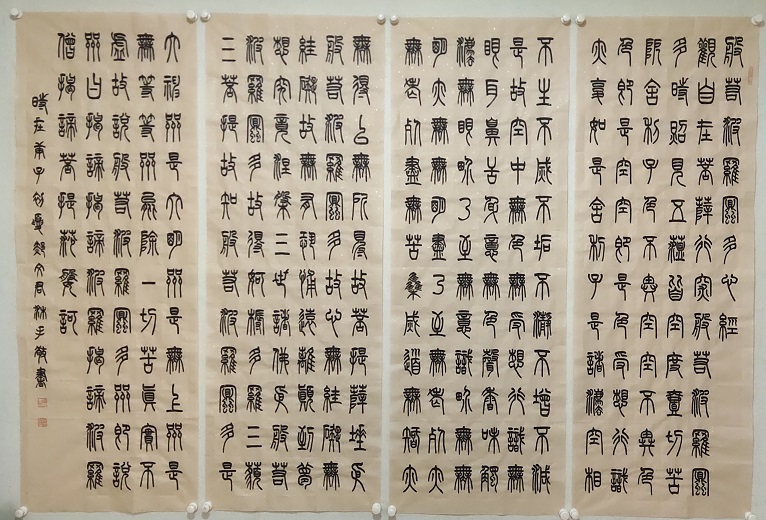 般若波羅蜜多心經
觀自在菩薩行深般若波羅蜜
多時照見五蘊皆空度一切苦
厄舍利子色不異空空不異色
色即是空空即是色受想行識
亦復如是舍利子是諸法空相
不生不滅不垢不淨不增不減
是故空中無色無受想行識無
眼耳鼻舌身意無色聲香味觸
法無眼界乃至無意識界無無
明亦無無明盡乃至無老死亦
無老死盡無苦集滅道無智亦
無得以無所得故菩提薩埵依
般若波羅蜜多故心無罣礙無
罣礙故無有恐怖遠離顛倒夢
想究竟涅槃三世諸佛依般若
波羅蜜多故得阿耨多羅三藐
三菩提故知般若波羅蜜多是
大神咒是大明咒是無上咒是
無等等咒能除一切苦真實不
虛故說般若波羅蜜多咒即說
咒曰揭諦揭諦波羅揭諦波羅
僧揭諦菩提薩婆訶
時在庚子初夏文君沐手敬書